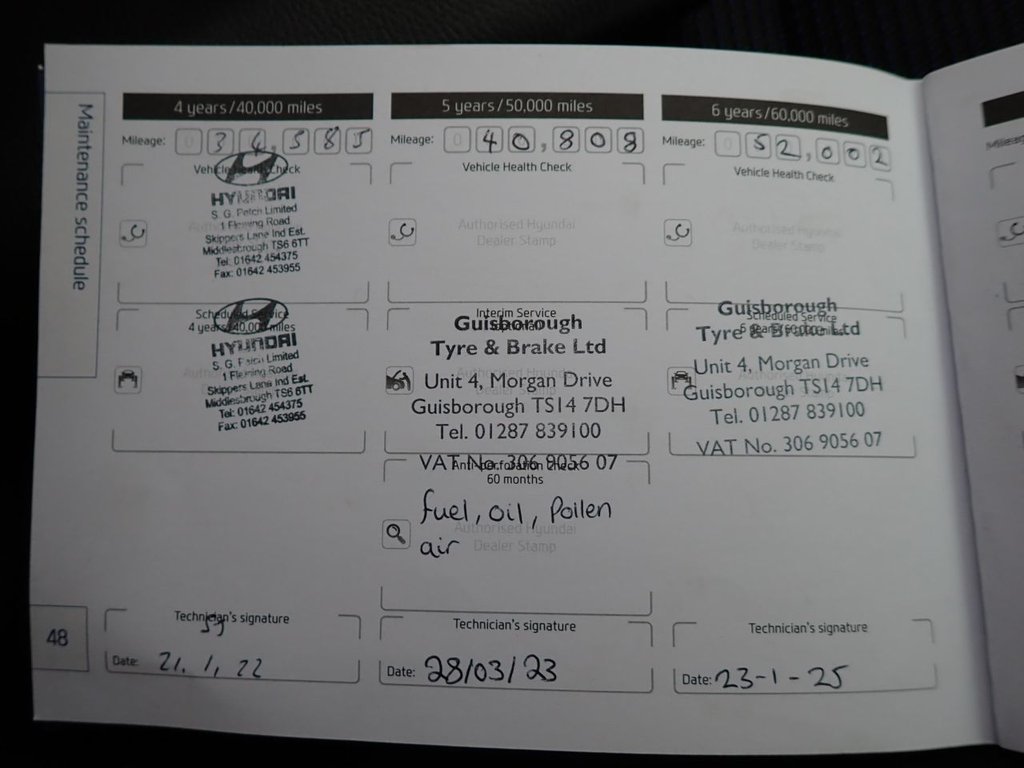 Maintenance schedule
4 years/40,000 miles
Mileage: 0 3 4, 5 8 5
Vehicle Health Check
HYUNDAI
S. G. Petch Limited
1 Fleming Road
Skippers Lane Ind Est.
Middlesbrough TS6 6TT
Tel: 01642 454375
Fax: 01642 453955
Scheduled Service
4 years/40,000 miles
HYUNDAI
S. G. Petch Limited
1 Fleming Road
Skippers Lane Ind Est.
Middlesbrough TS6 6TT
Tel: 01642 454375
Fax: 01642 453955
Technician's signature
Date: 21. 1, 22
5 years/50,000 miles
Mileage: 0 4 0, 8 0 8
Vehicle Health Check
Authorised Hyundai
Dealer Stamp
Interim Service
Guisborough
Tyre & Brake Ltd
Unit 4, Morgan Drive
Guisborough TS14 7DH
Tel. 01287 839100
VAT No. 306 9056 07
Anti-perforation Check
60 months
fuel, oil, Pollen
air
Authorised Hyundai
Dealer Stamp
Technician's signature
Date: 28/03/23
6 years/60,000 miles
Mileage: 0 5 2, 0 0 2
Vehicle Health Check
Authorised Hyundai
Dealer Stamp
Scheduled Service
6 years/60,000 miles
Guisborough
Tyre & Brake Ltd
Unit 4, Morgan Drive
Guisborough TS14 7DH
Tel. 01287 839100
VAT No. 306 9056 07
Technician's signature
Date: 23-1-25
48